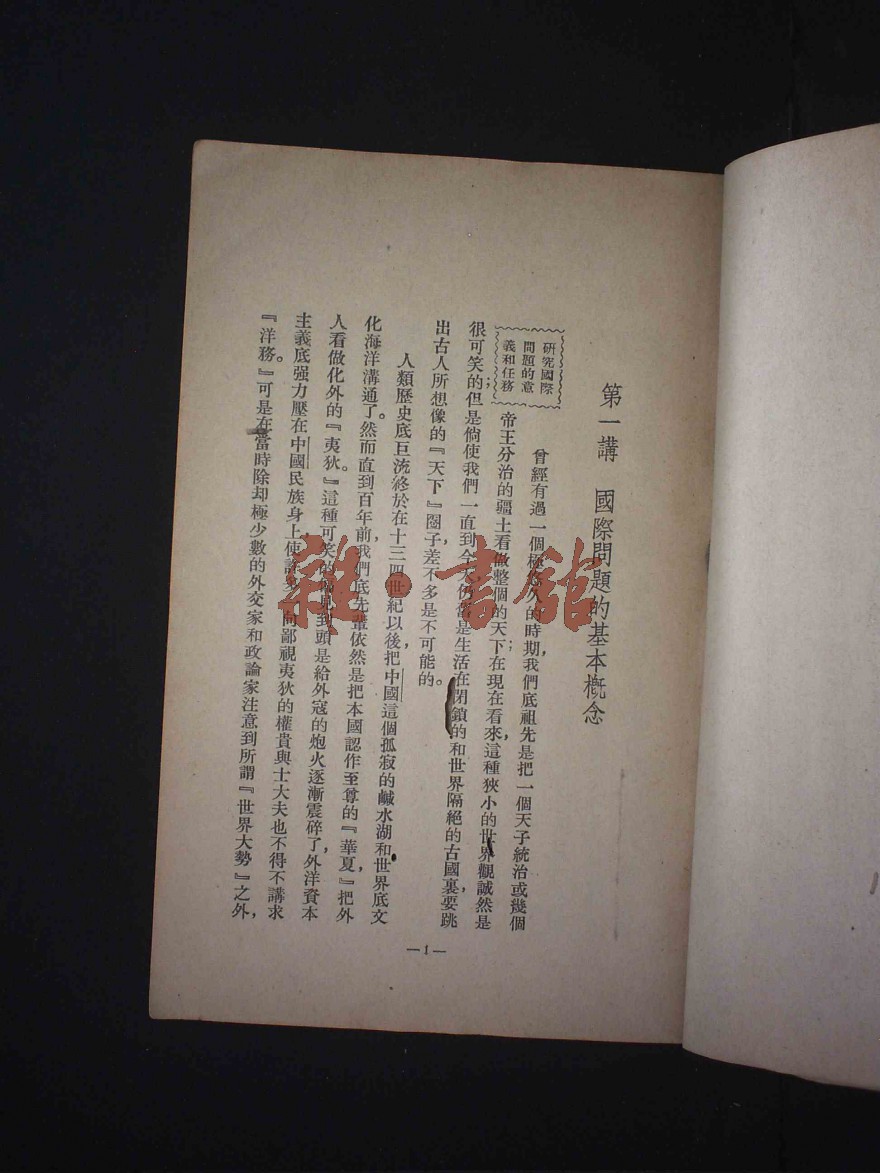 第一講　國際問題的基本槪念
研究國際
問題的意
義和任務
曾經有過一個極悠久的時期，我們底祖先是把一個天子統治或幾個
帝王分治的疆土看做整個的天下；在現在看來，這種狹小的世界觀誠然是
很可笑的；但是倘使我們一直到今天仍當是生活在閉鎖的和世界隔絕的古國裏，要跳
出古人所想像的『天下』圈子，差不多是不可能的。
人類歷史底巨流終於在十三四世紀以後，把中國這個孤寂的鹹水湖和世界底文
化海洋溝通了。然而直到百年前，我們底先輩依然是把本國認作至尊的『華夏，』把外
人看做化外的『夷狄。』這種可笑的偏見到頭是給外寇的炮火逐漸震碎了，外洋資本
主義底强力壓在中國民族身上，使許多一向鄙視夷狄的權貴與士大夫也不得不講求
『洋務。』可是在當時除却極少數的外交家和政論家注意到所謂『世界大勢』之外，
—1—
雜·書館